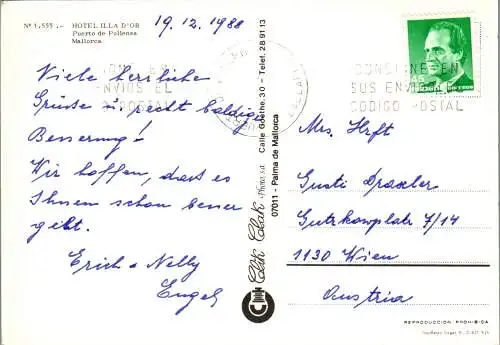 Nº 1.555.- HOTEL ILLA D'OR
Puerto de Pollensa
Mallorca
19.12.1988
Viele herrliche
Grüsse u. recht baldige
Besserung!
Wir hoffen, dass es
Ihnen schon besser
geht.
Erich + Nelly
Engel
Clik Clak Photo, s.a. Calle Goethe, 30 - Telef. 28 91 13
07011 - Palma de Mallorca
CONSIGNE EN
SUS ENVIOS EL
CODIGO POSTAL
Mrs. Hrft
Gusti Draxler
Gutzkowplatz 7/14
1130 Wien
Austria
REPRODUCCION PROHIBIDA